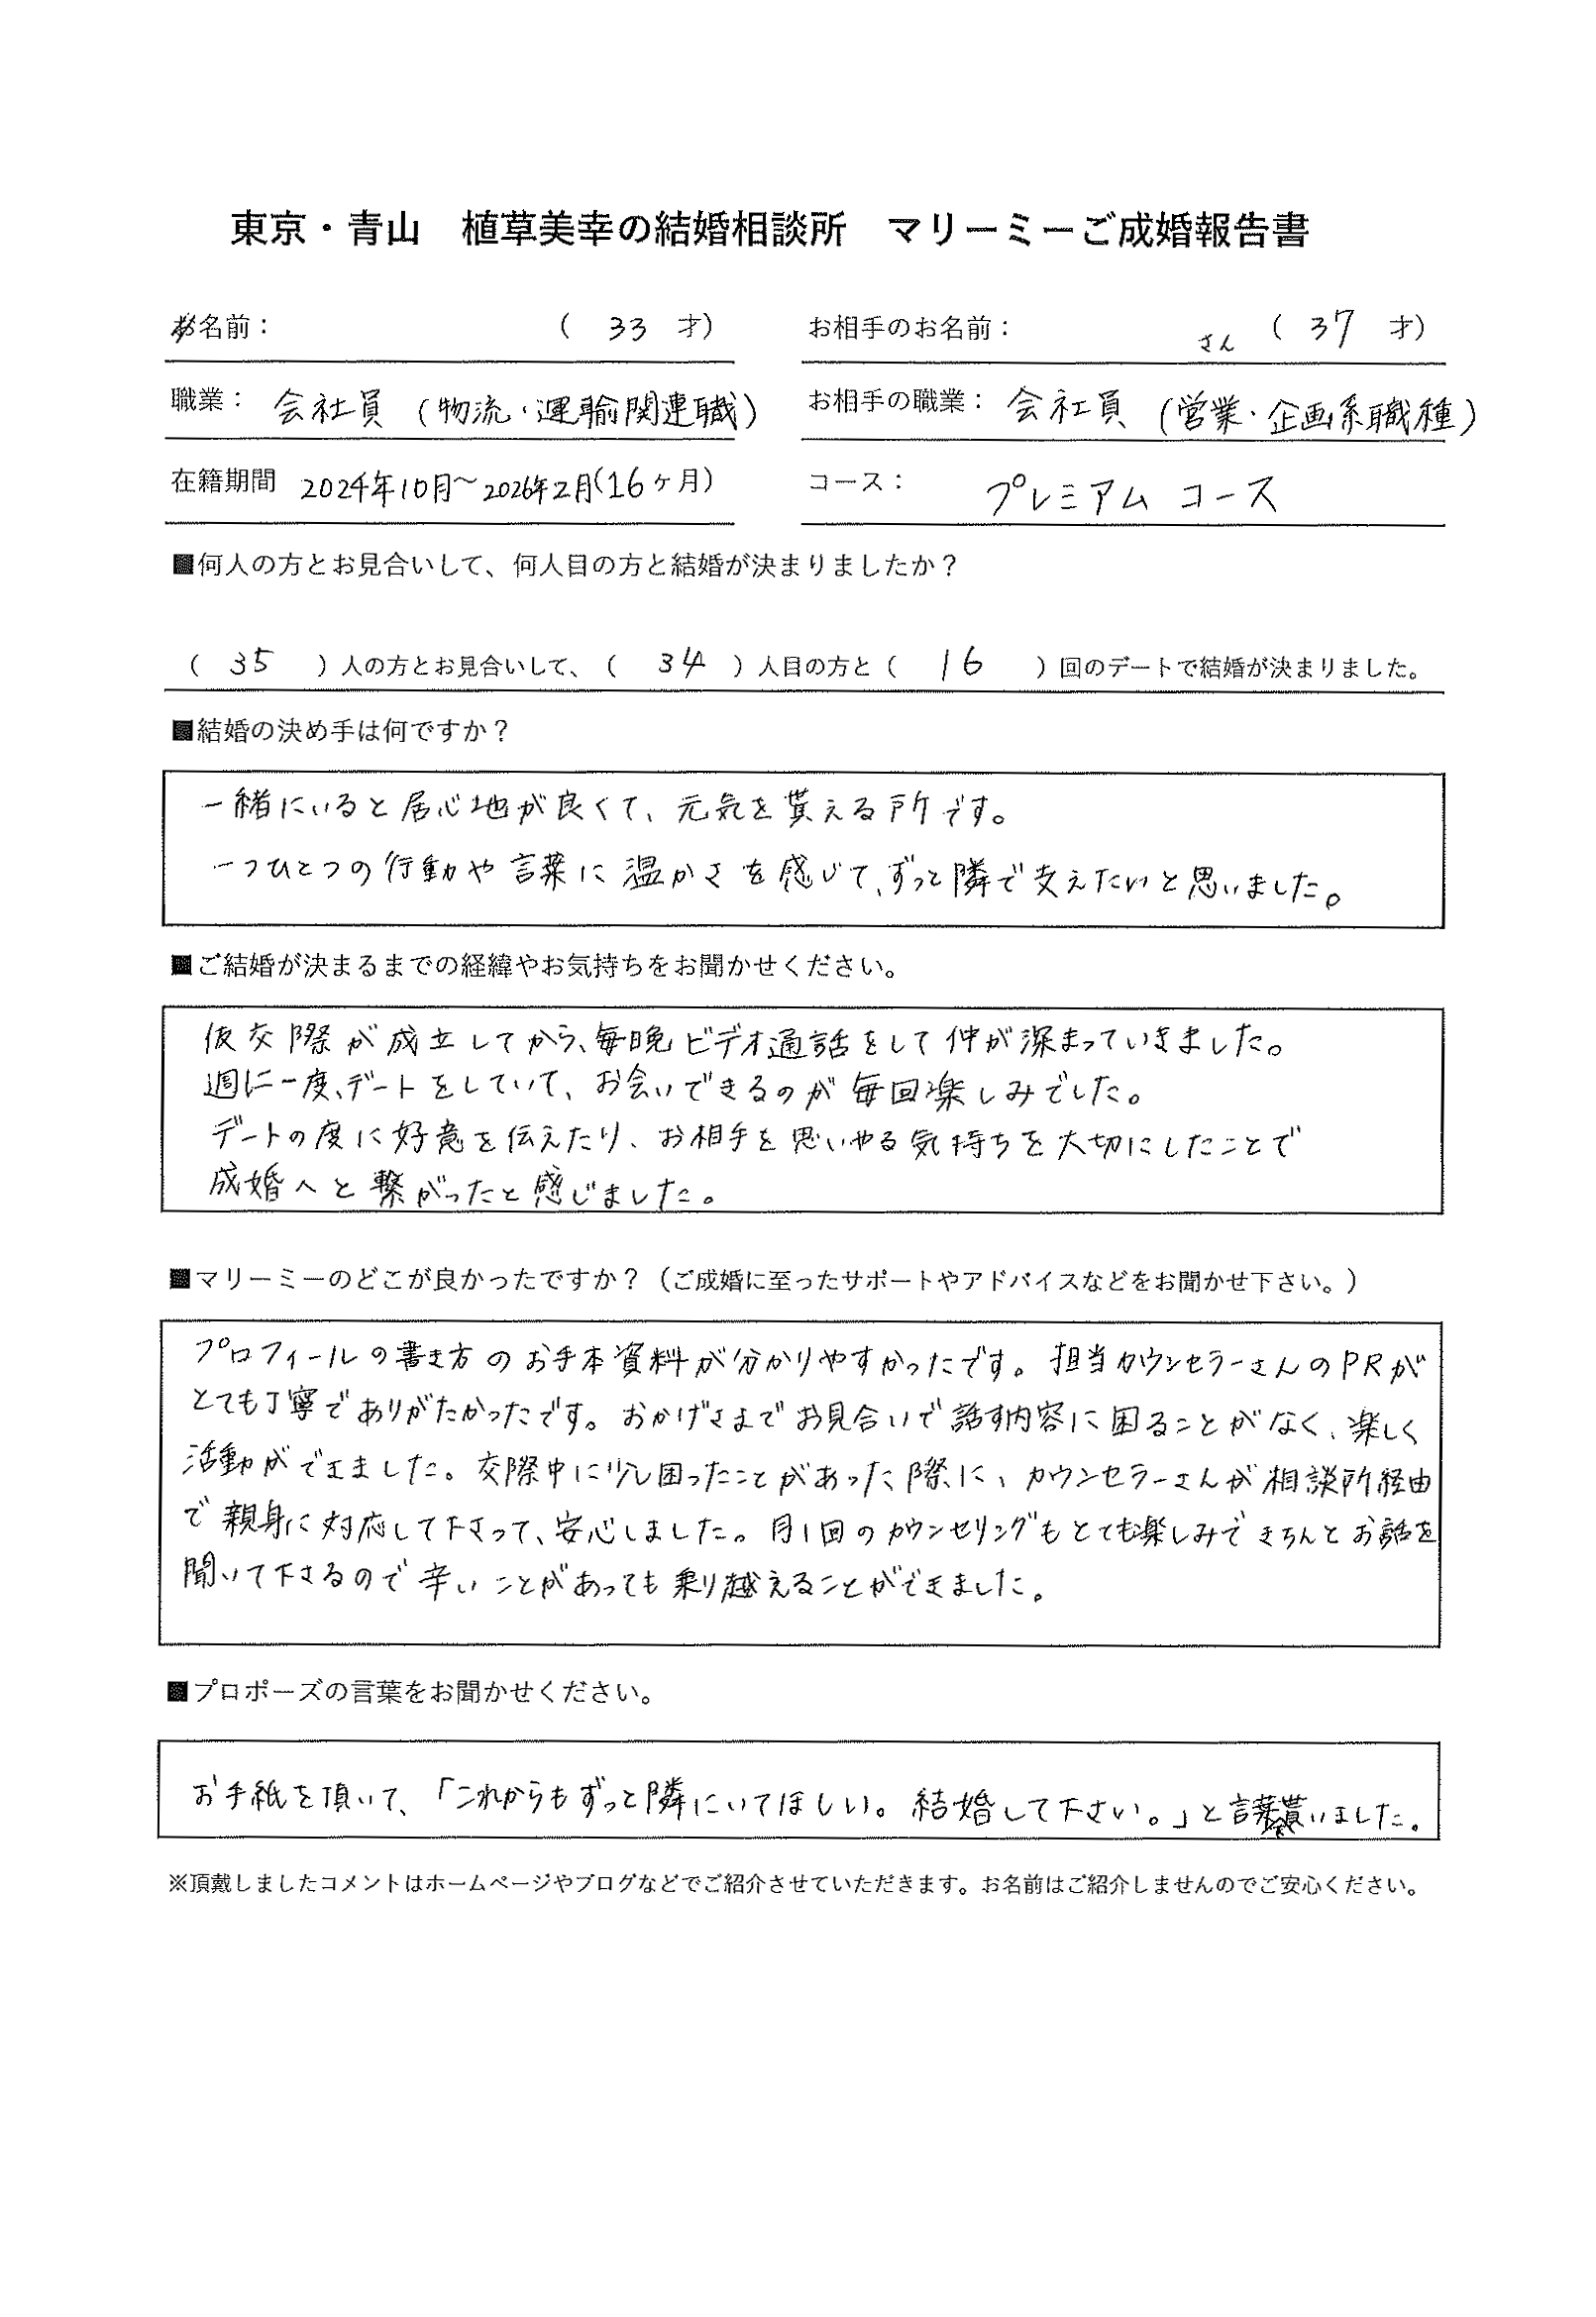 東京・青山　植草美幸の結婚相談所　マリーミーご成婚報告書
お名前：　（ 33 才）　お相手のお名前：　さん （ 37 才）
職業： 会社員 (物流・運輸関連職)　お相手の職業： 会社員 (営業・企画系職種)
在籍期間 2024年10月～2026年2月(16ヶ月)　コース： プレミアム コース
■何人の方とお見合いして、何人目の方と結婚が決まりましたか？
（ 35 ）人の方とお見合いして、（ 34 ）人目の方と（ 16 ）回のデートで結婚が決まりました。
■結婚の決め手は何ですか？
一緒にいると居心地が良くて、元気を貰える所です。
一つひとつの行動や言葉に温かさを感じて、ずっと隣で支えたいと思いました。
■ご結婚が決まるまでの経緯やお気持ちをお聞かせください。
仮交際が成立してから、毎晩ビデオ通話をして仲が深まっていきました。
週に一度、デートをしていて、お会いできるのが毎回楽しみでした。
デートの度に好意を伝えたり、お相手を思いやる気持ちを大切にしたことで
成婚へと繋がったと感じました。
■マリーミーのどこが良かったですか？（ご成婚に至ったサポートやアドバイスなどをお聞かせ下さい。）
プロフィールの書き方のお手本資料が分かりやすかったです。担当カウンセラーさんのPRが
とても丁寧でありがたかったです。おかげさまでお見合いで話す内容に困ることがなく、楽しく
活動ができました。交際中に少し困ったことがあった際に、カウンセラーさんが相談所経由
で親身に対応して下さって、安心しました。月1回のカウンセリングもとても楽しみできちんとお話を
聞いて下さるので辛いことがあっても乗り越えることができました。
■プロポーズの言葉をお聞かせください。
お手紙を頂いて、「これからもずっと隣にいてほしい。結婚して下さい。」と言葉貰いました。
※頂戴しましたコメントはホームページやブログなどでご紹介させていただきます。お名前はご紹介しませんのでご安心ください。